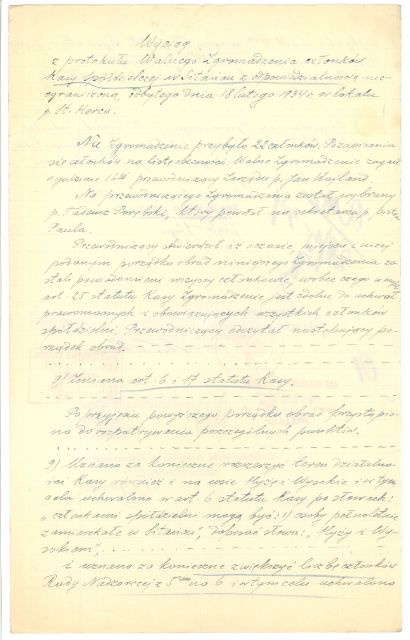 Wyciąg
z protokułu Walnego Zgromadzenia członków
Kasy Spółdzielczej w Sitańcu z odpowiedzialnością nie-
ograniczoną, odbytego dnia 18 lutego 1934 r. w lokalu
p. St. Herca.
Na Zgromadzenie przybyło 22 członków. Po zapisaniu
się członków na listę obecności Walne Zgromadzenie zagaił
o godzinie przewodniczący Zarządu p. Jan Wajland.
Na przewodniczącego Zgromadzenia został wybrany
p. Tadeusz Porębski, który powołał na sekretarza p.
Paula.
Przewodniczący stwierdził iż o czasie, miejscu i niżej
podanym porządku obrad niniejszego Zgromadzenia zo-
stali powiadomieni wszyscy członkowie, wobec czego w myśl
art. 25 statutu Kasy Zgromadzenie jest zdolne do uchwał
prawomocnych i obowiązujących wszystkich członków
spółdzielni. Przewodniczący odczytał następujący po-
rządek obrad.
9) Zmiana art. 6 i 17 statutu Kasy.
Po przyjęciu powyższego porządku obrad przystąpio-
no do rozpatrywania poszczególnych punktów.
9) Uznano za konieczne rozszerzyć teren działalno-
ści Kasy również i na wsie Hyże i Wysokie i w tym
celu uchwalono w art. 6 statutu Kasy po słowach:
"członkami spółdzielni mogą być: 1) osoby pełnoletnie
zamieszkałe w Sitańcu", dopisać słowa: "Hyży i Wy-
sokiem",
i uznano za konieczne zwiększyć liczbę członków
Rady Nadzorczej z 5 na 6 i w tym celu uchwalono